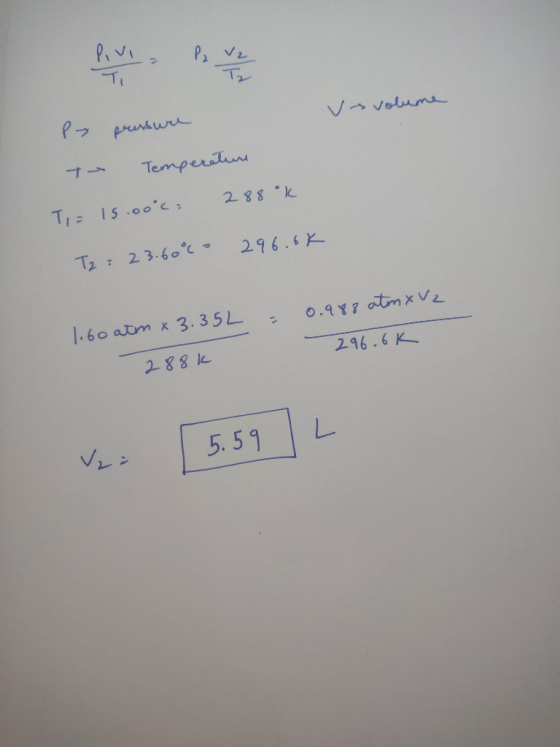 P₁ V₁ / T₁ = P₂ V₂ / T₂
P → pressure V → volume
T → Temperature
T₁ = 15.00°C = 288°K
T₂ = 23.60°C = 296.6K
1.60 atm × 3.35L / 288K = 0.988 atm × V₂ / 296.6K
V₂ = 5.59 L